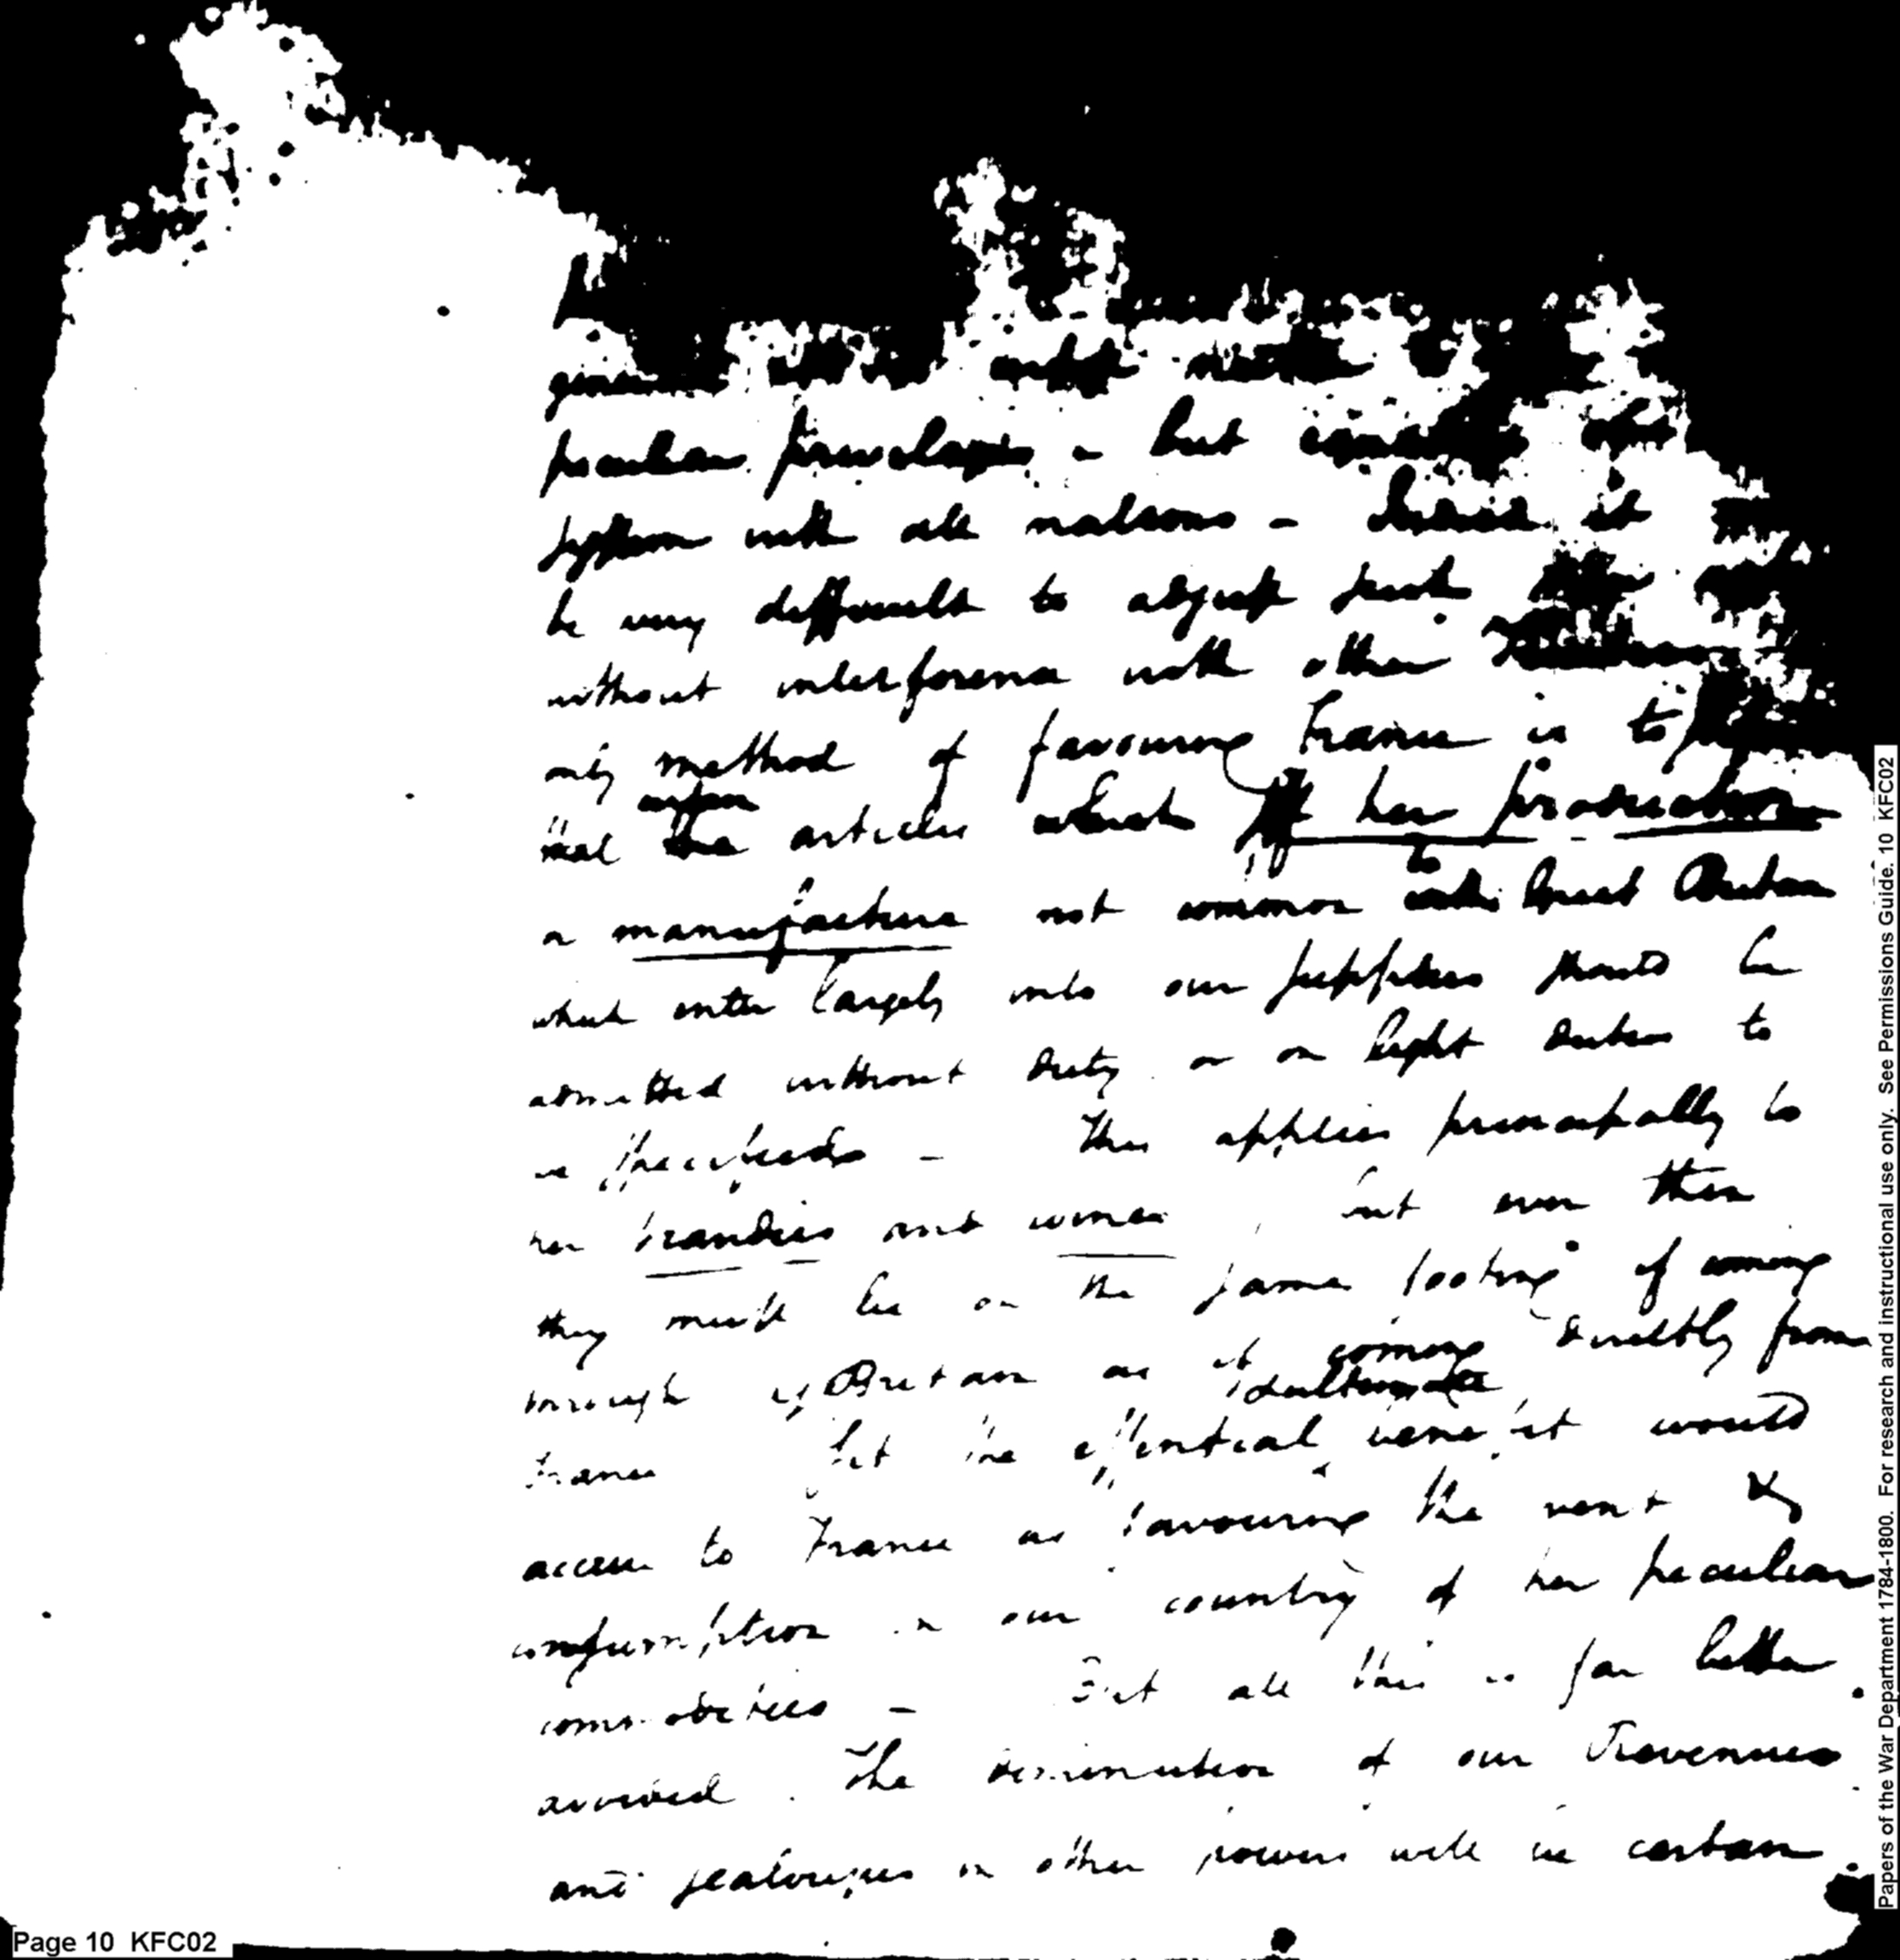 peculiar privileges – but
system with all nations – Besides it
be very difficult to adjust such
without interference with other
only method of favouring France is to
that certain articles which of her production
or manufacture not common to Great Britain
which enter largely into our supplies should be
admitted without duty or on light duties to
be specified – This applies principally to
her brandies and wines, but even then
they must be on the same footing if coming
through G Britain as if coming directly from
France But the essential benefit would
accrue to France as favouring the vent &
consumption in our country of her peculiar
commodities – But all this is far better
avoided. The diminution of our Revenues
and jealousies in other powers will be certain
Page 10 KFC02
Papers of the War Department 1784-1800. For research and instructional use only. See Permissions Guide. 10 KFC02